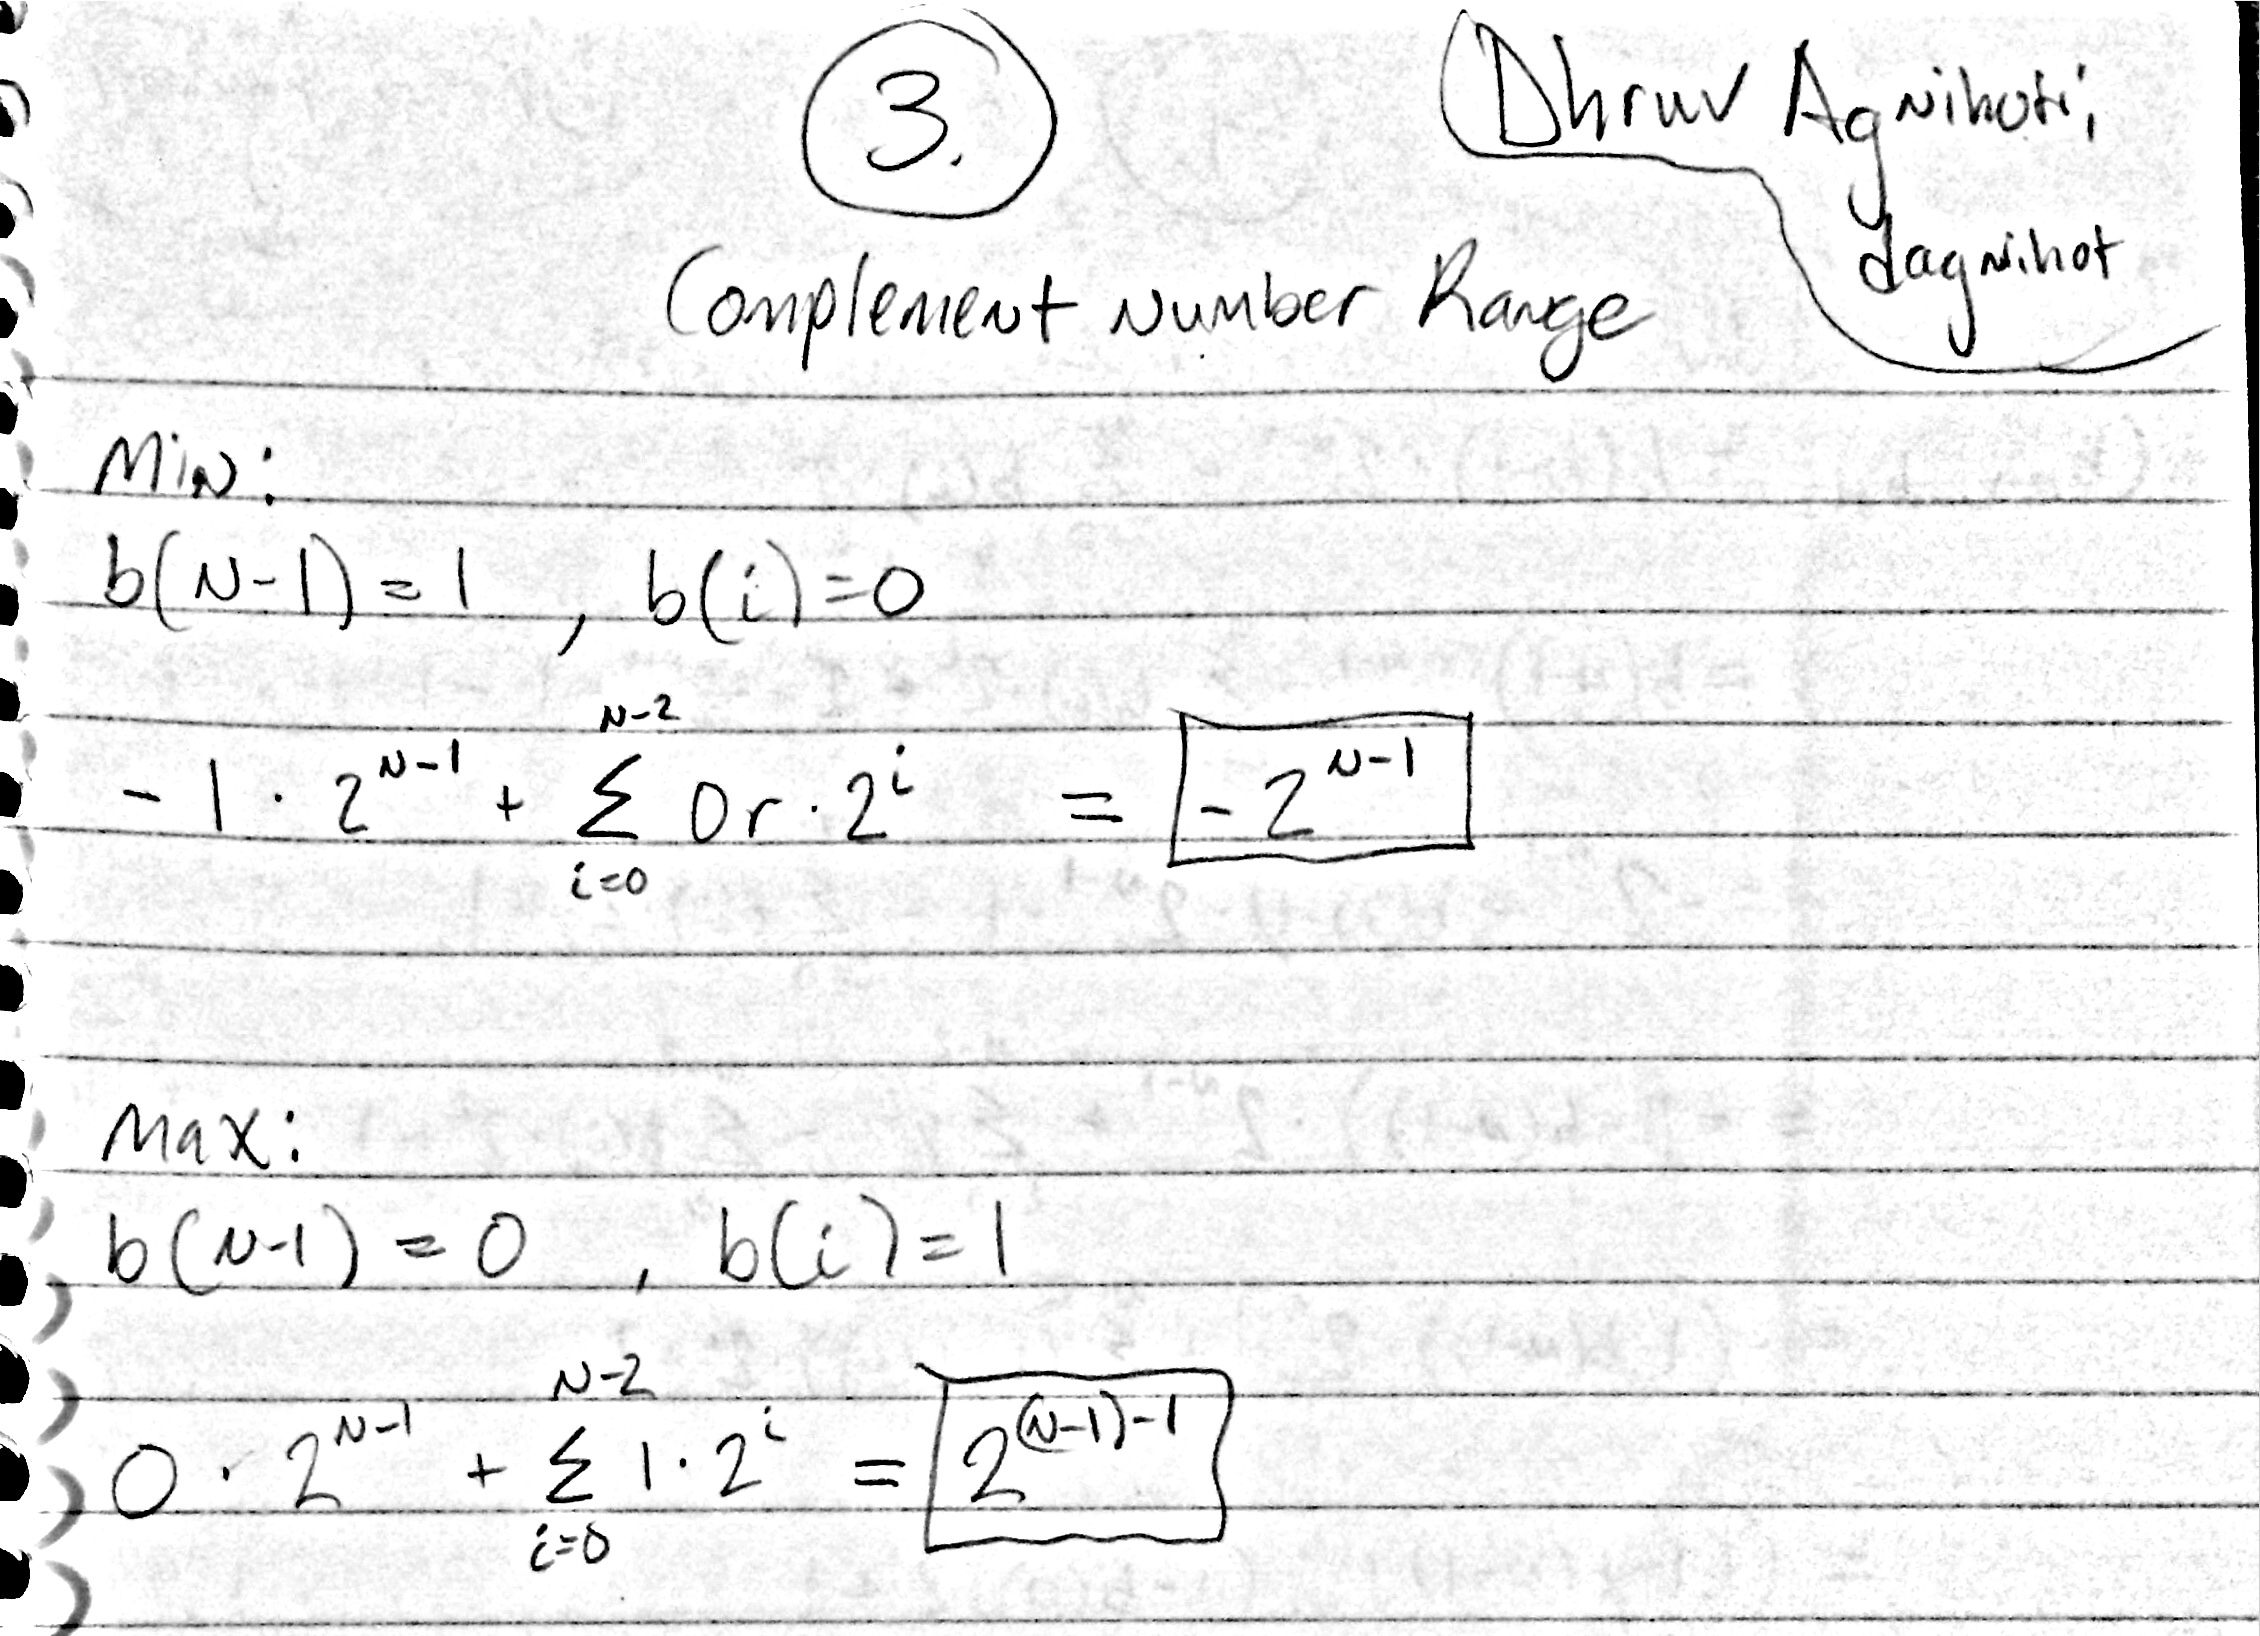 3.
Dhruv Agnihotri,
dagnihot
Complement Number Range
Min:
b(N-1)=1 , b(i)=0
-1 · 2^{N-1} + \sum_{i=0}^{N-2} 0r · 2^i = -2^{N-1}
Max:
b(N-1)=0 , b(i)=1
0 · 2^{N-1} + \sum_{i=0}^{N-2} 1 · 2^i = 2^{(N-1)-1}